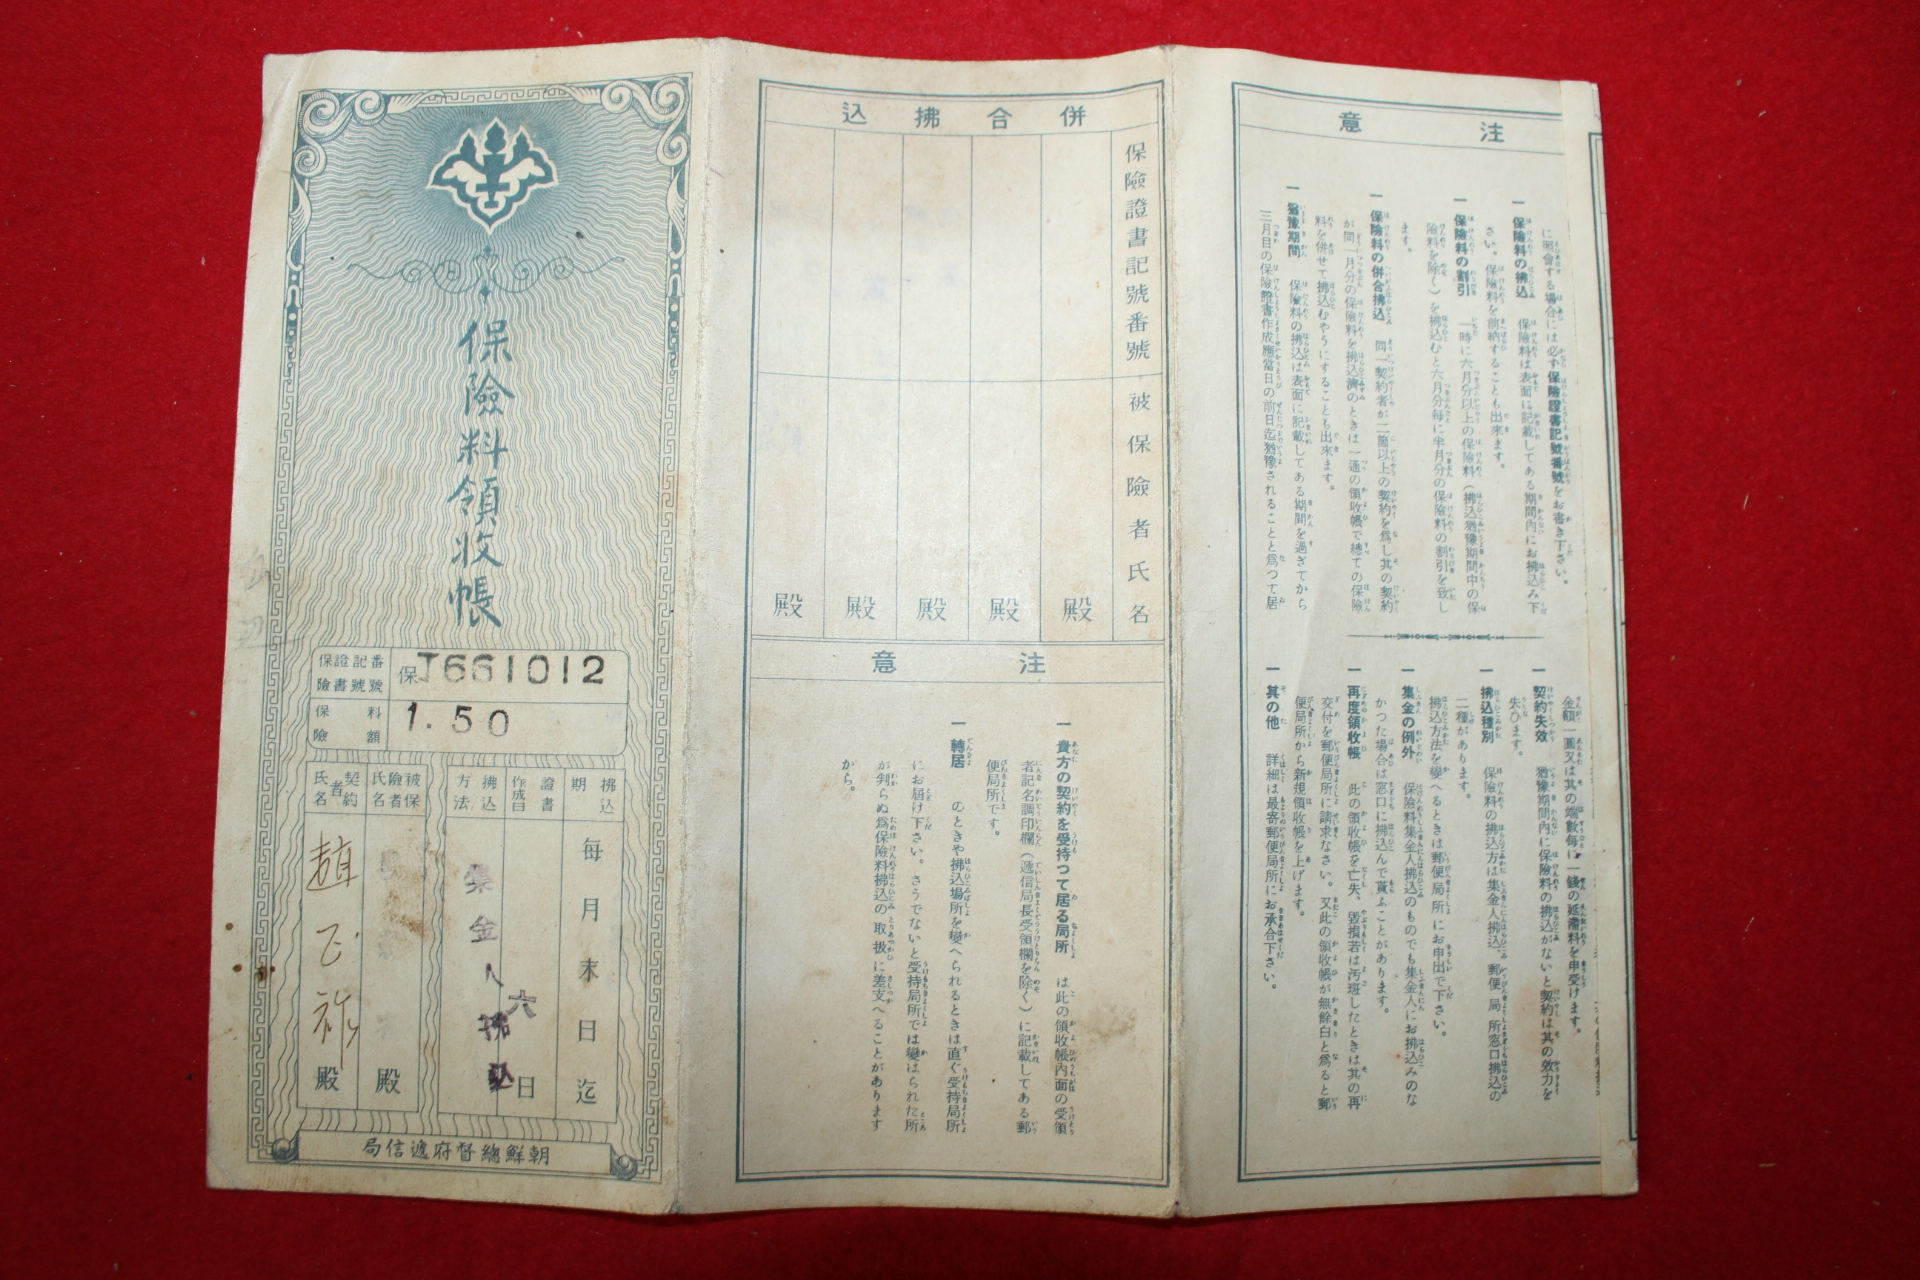 保險料領收帳
保險證書記號番號
保J661012
保險料額
1.50
拂込期
每月末日迄
證書作成日
六日
拂込方法
集金人拂込
被保險者氏名
殿
契約者氏名
趙
殿
朝鮮總督府遞信局
併合拂込
保險證書記號番號
被保險者氏名
殿
殿
殿
殿
殿
注意
一 貴方の契約を受持つて居る局所 は此の領收帳內面の受領
者記名調印欄（遞信局長受領欄を除く）に記載してある郵
便局所です。
一 轉居 のときや拂込場所を變へられるときは直ぐ受持局所
にお屆け下さい。さうでないと受持局所では變はられた所
が判らぬ爲保險料拂込の取扱に差支へることがあります
から。
注意
に照會する場合には必ず保險證書記號番號をお書き下さい。
一 保險料の拂込 保險料は表面に記載してある期間內にお拂込み下
さい。保險料を前納することも出來ます。
一 保險料の割引 一時に六月分以上の保險料（拂込猶豫期間中の保
險料を除く）を拂込むと六月分每に半月分の保險料の割引を致し
ます。
一 保險料の併合拂込 同一契約者が二箇以上の契約を爲し其の契約
が同一月分の保險料を拂込濟のときは一通の領收帳で總ての保險
料を併せて拂込むやうにすることも出來ます。
一 猶豫期間 保險料の拂込は表面に記載してある期間を過ぎてから
三月目の保險證書作成應當日の前日迄猶豫されることと爲つて居
金額一圓又は其の端數每に一錢の延滯料を申受けます。
一 契約失效 猶豫期間內に保險料の拂込がないと契約は其の效力を
失ひます。
一 拂込種別 保險料の拂込方は集金人拂込、郵便局所窓口拂込の
二種があります。
拂込方法を變へるときは郵便局所にお申出で下さい。
一 集金の例外 保險料集金人拂込のものでも集金人にお拂込みのな
かつた場合は窓口に拂込んで貰ふことがあります。
一 再度領收帳 此の領收帳を亡失、毀損若は汚斑したときは其の再
交付を郵便局所に請求なさい。又此の領收帳が無餘白と爲ると郵
便局所から新規領收帳を上げます。
一 其の他 詳細は最寄郵便局所にお承合下さい。